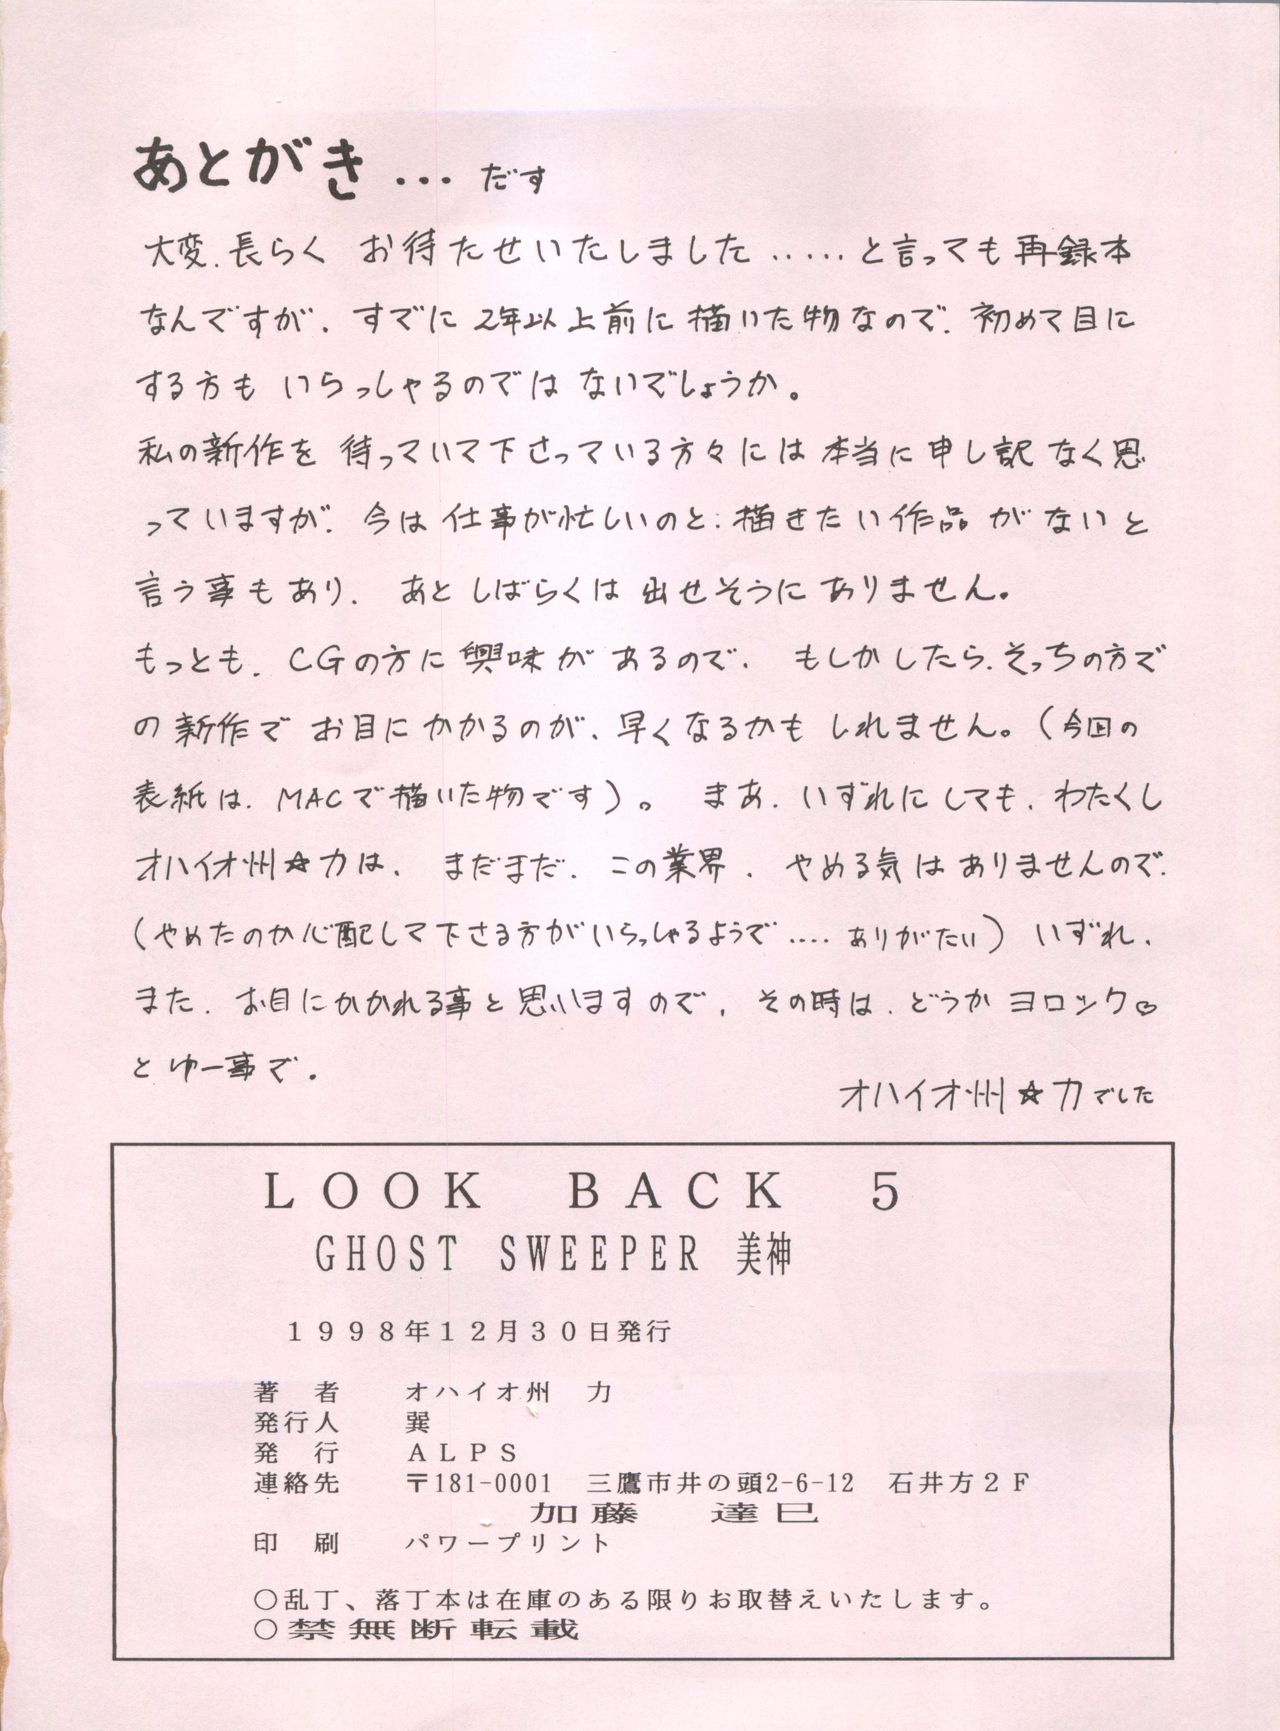 あとがき...だす
大変、長らく お待たせいたしました.....と言っても再録本
なんですが、すでに2年以上前に描いた物なので、初めて目に
する方も いらっしゃるのでは ないでしょうか。
私の新作を 待っていて下さっている方々には本当に申し訳なく思
っていますが、今は仕事が忙しいのと、描きたい作品がないと
言う事もあり、あとしばらくは出せそうにありません。
もっとも、CGの方に興味があるので、もしかしたら、そっちの方で
の新作で お目にかかるのが、早くなるかも しれません。(今回の
表紙は、MACで描いた物です)。 まあ、いずれにしても、わたくし
オハイオ州☆力は、まだまだ、この業界、やめる気はありませんので、
(やめたのか心配して下さる方がいらっしゃるようで....ありがたい) いずれ、
また、お目にかかれる事と思いますので、その時は、どうかヨロシク♡
とゆー事で。
オハイオ州☆力でした
LOOK BACK 5
GHOST SWEEPER 美神
1998年12月30日発行
著 者 オハイオ州 力
発行人 巽
発 行 ALPS
連絡先 〒181-0001 三鷹市井の頭2-6-12 石井方2F
加藤 達巳
印 刷 パワープリント
○乱丁、落丁本は在庫のある限りお取替えいたします。
○禁無断転載